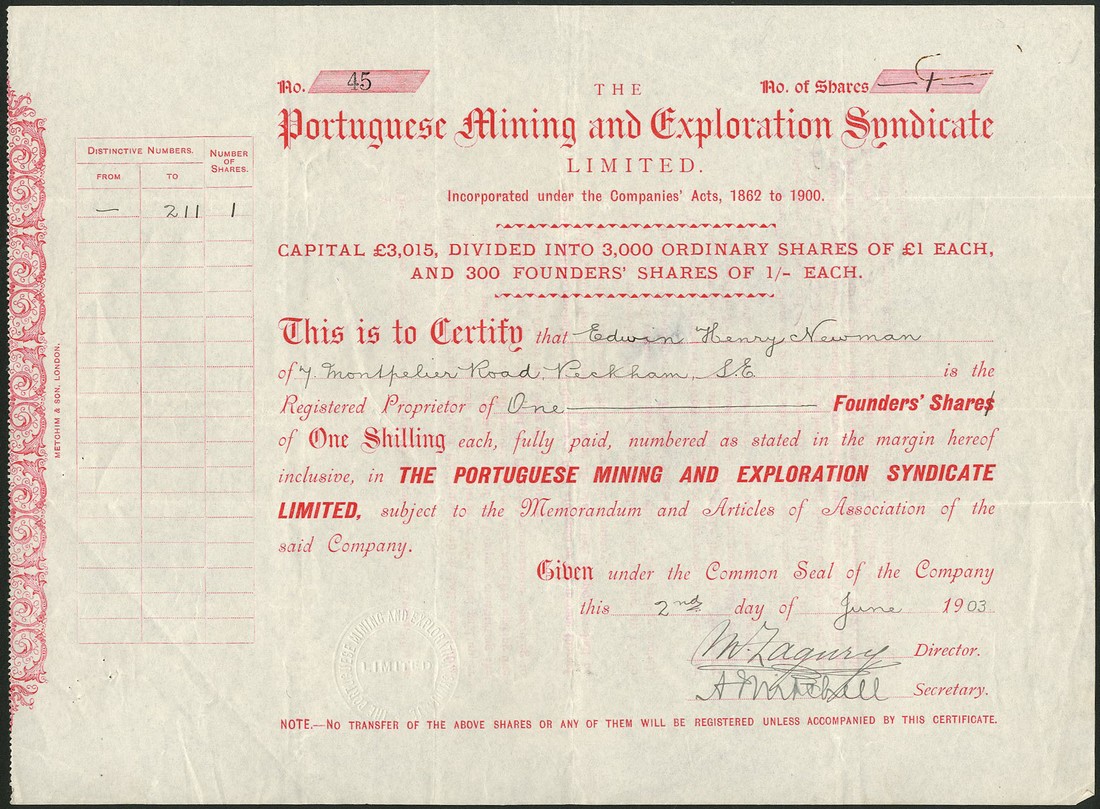 No. 45
THE
No. of Shares — 1 —
Portuguese Mining and Exploration Syndicate
LIMITED.
Incorporated under the Companies' Acts, 1862 to 1900.
CAPITAL £3,015, DIVIDED INTO 3,000 ORDINARY SHARES OF £1 EACH,
AND 300 FOUNDERS' SHARES OF 1/- EACH.
DISTINCTIVE NUMBERS.
NUMBER OF SHARES.
FROM
TO
— 211 1
METCHIM & SON, LONDON.
This is to Certify that Edwin Henry Newman
of 7, Montpelier Road, Peckham, S.E. is the
Registered Proprietor of One Founders' Shares
of One Shilling each, fully paid, numbered as stated in the margin hereof
inclusive, in THE PORTUGUESE MINING AND EXPLORATION SYNDICATE
LIMITED, subject to the Memorandum and Articles of Association of the
said Company.
Given under the Common Seal of the Company
this 2nd day of June 1903
M. Zagury Director.
Secretary.
MINING AND EXPLORATION
LIMITED
NOTE.—NO TRANSFER OF THE ABOVE SHARES OR ANY OF THEM WILL BE REGISTERED UNLESS ACCOMPANIED BY THIS CERTIFICATE.